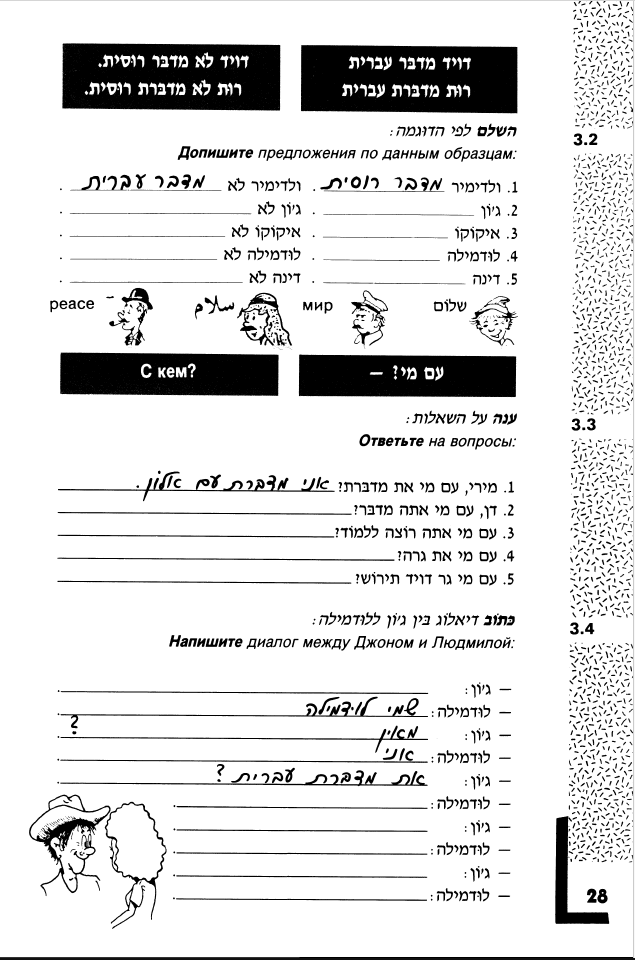 דויד מדבר עברית
רות מדברת עברית
דויד לא מדבר רוסית.
רות לא מדברת רוסית.
3.2
השלם לפי הדוגמה:
Допишите предложения по данным образцам:
1. ולדימיר מדבר רוסית. ולדימיר לא מדבר עברית.
2. ג'ון ______. ג'ון לא ______.
3. איקוקו ______. איקוקו לא ______.
4. לודמילה ______. לודמילה לא ______.
5. דינה ______. דינה לא ______.
שלום мир سلام peace
עם מי? –
С кем?
3.3
ענה על השאלות:
Ответьте на вопросы:
1. מירי, עם מי את מדברת? אני מדברת עם אלון.
2. דן, עם מי אתה מדבר? ______.
3. עם מי אתה רוצה ללמוד? ______.
4. עם מי את גרה? ______.
5. עם מי גר דויד תירוש? ______.
3.4
כתוב דיאלוג בין ג'ון ללודמילה:
Напишите диалог между Джоном и Людмилой:
– ג'ון: ______.
– לודמילה: שמי לודמילה.
– ג'ון: מאין ______?
– לודמילה: אני ______.
– ג'ון: את מדברת עברית?
– לודמילה: ______.
– ג'ון: ______.
– לודמילה: ______.
– ג'ון: ______.
– לודמילה: ______.
28